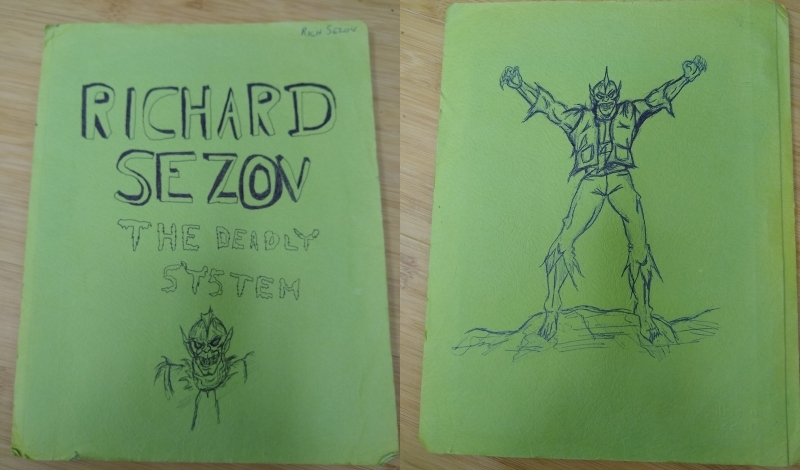 Rich Sezov
RICHARD
SEZOV
THE DEADLY
SYSTEM